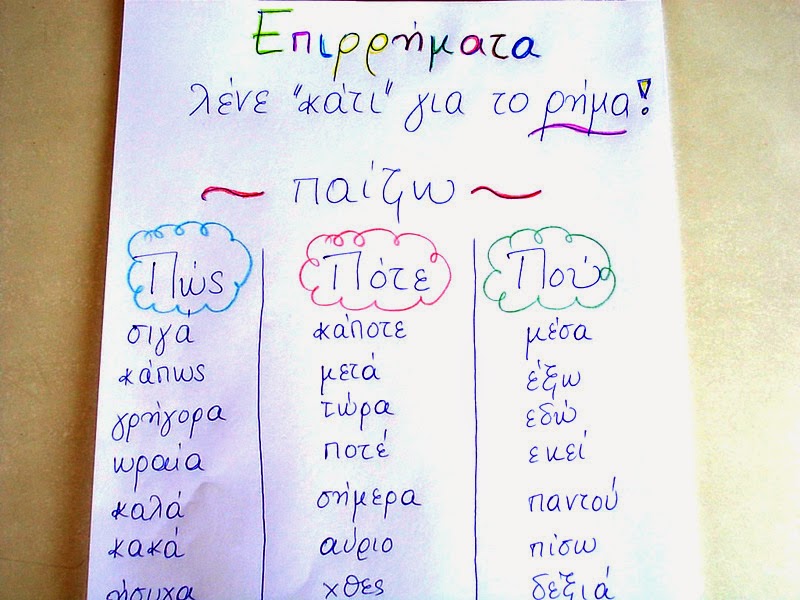 Επιρρήματα
λένε "κάτι" για το ρήμα!
~ παίζω ~
Πώς Πότε Πού
σιγά κάποτε μέσα
κάπως μετά έξω
γρήγορα τώρα εδώ
ωραία ποτέ εκεί
καλά σήμερα παντού
κακά αύριο πίσω
ήσυχα χθες δεξιά